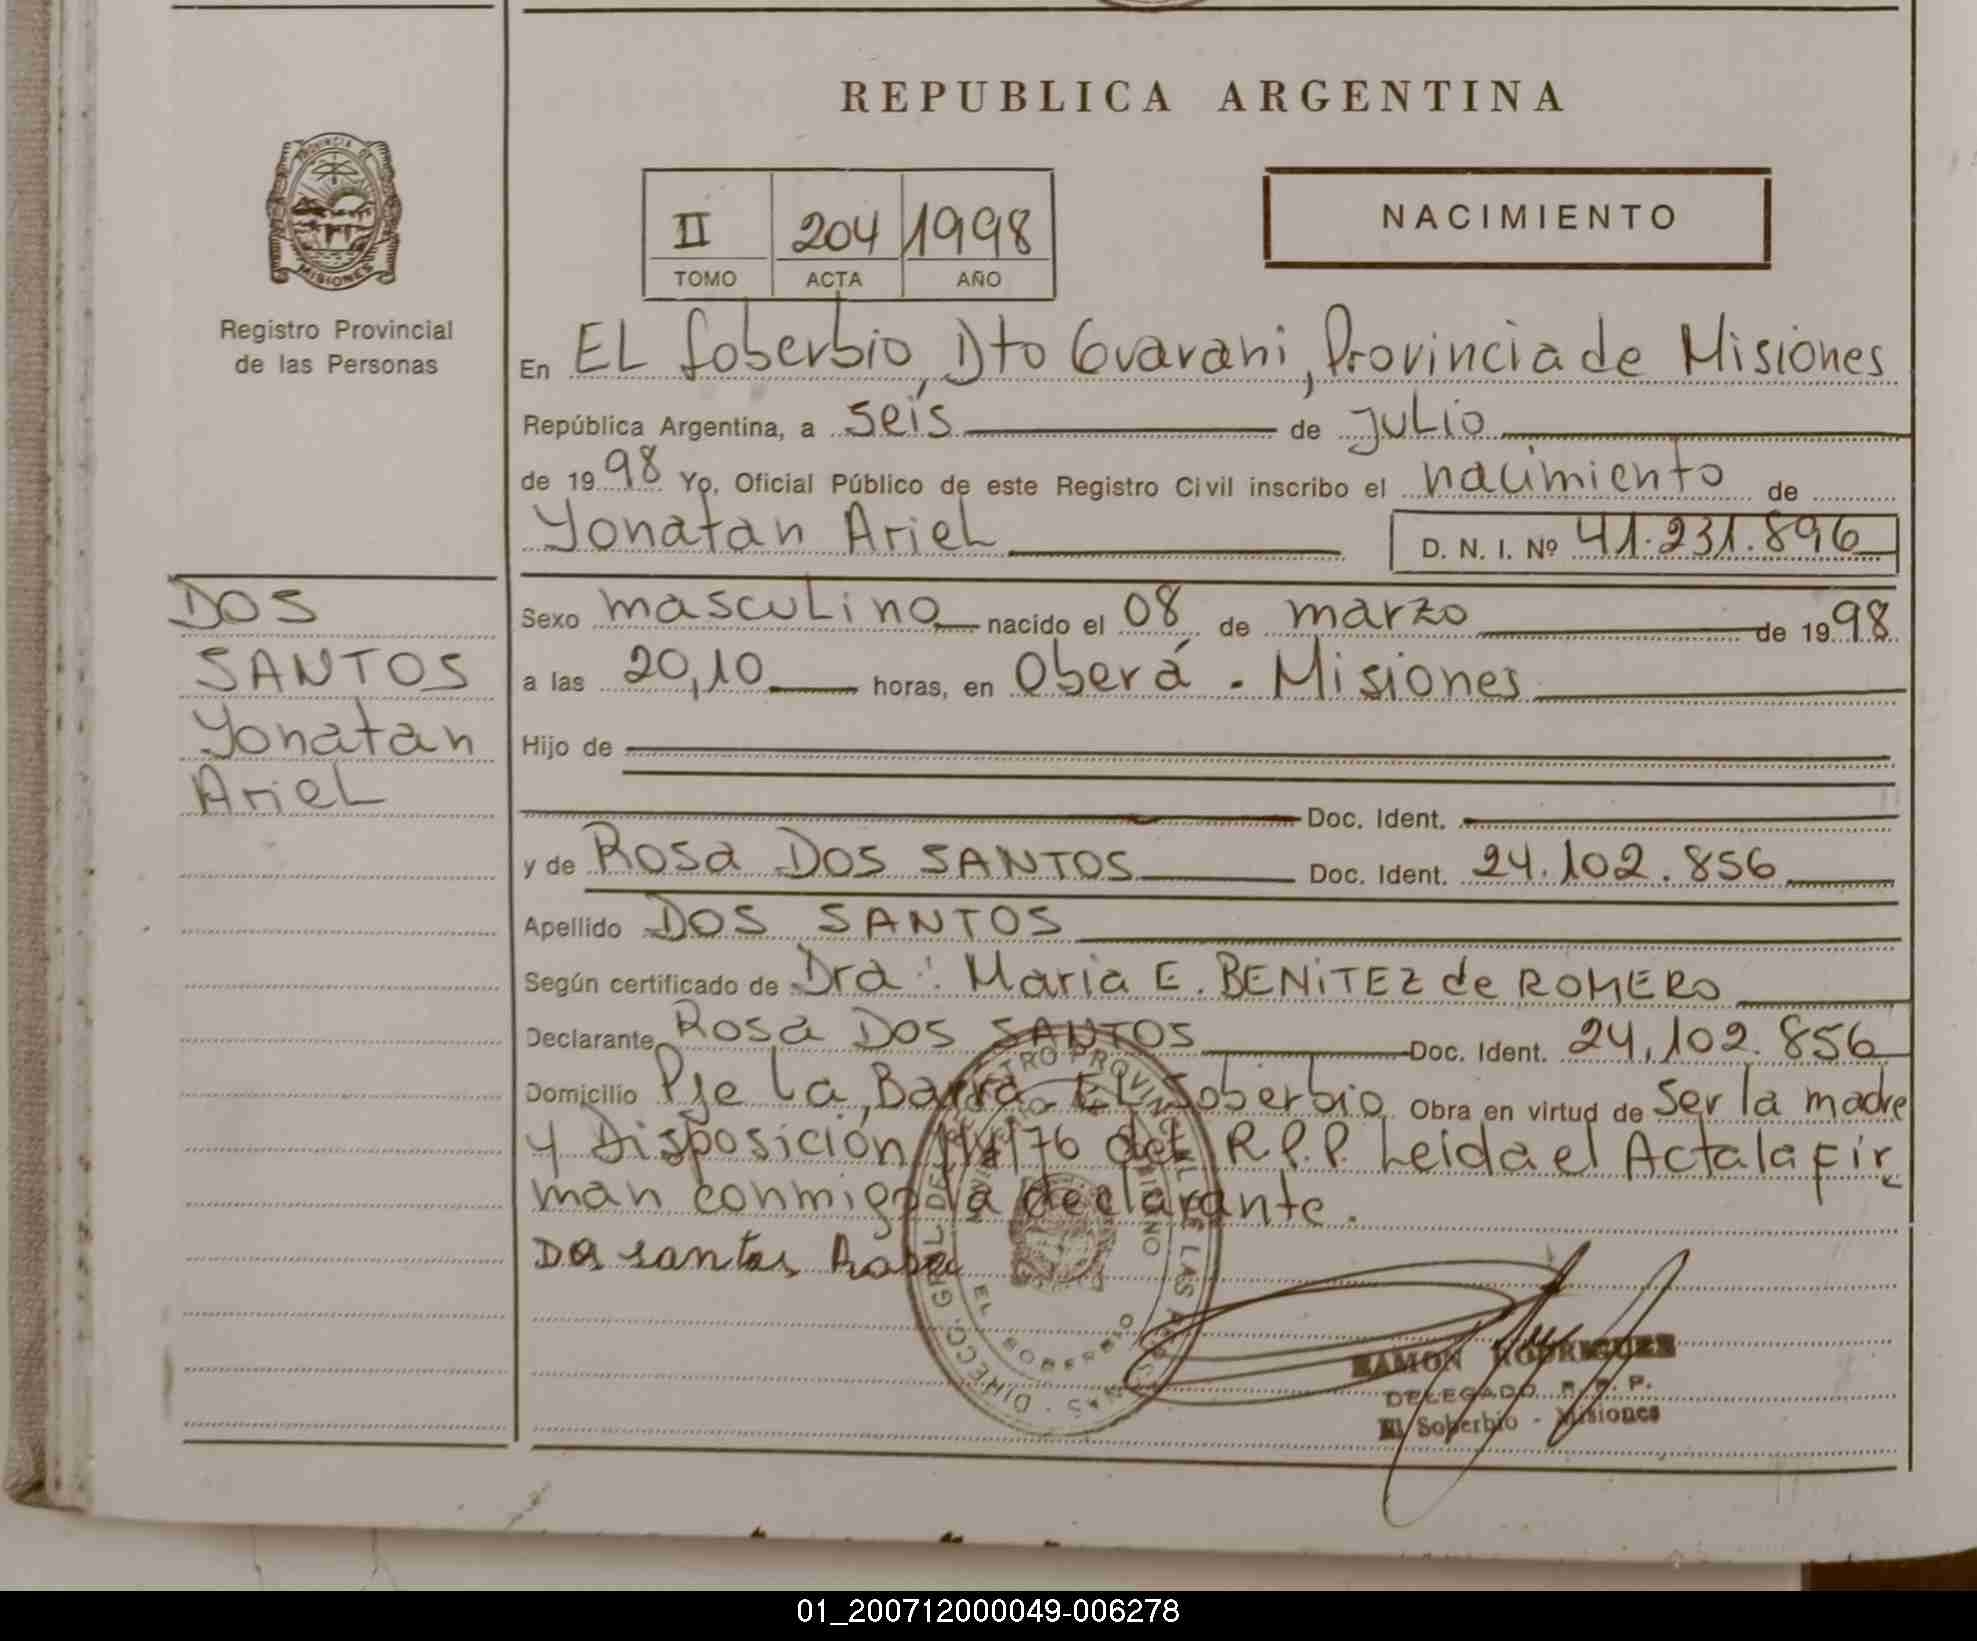 REPUBLICA ARGENTINA
PROVINCIA DE
MISIONES
Registro Provincial
de las Personas
II 204 1998
TOMO ACTA AÑO
NACIMIENTO
En EL Soberbio, Dto Guarani, Provincia de Misiones
República Argentina, a seis de julio
de 1998 Yo, Oficial Público de este Registro Civil inscribo el nacimiento de
Yonatan Ariel D. N. I. Nº 41.231.896
DOS
SANTOS
Yonatan
Ariel
Sexo masculino nacido el 08 de marzo de 1998
a las 20,10 horas, en Oberá - Misiones
Hijo de
Doc. Ident.
y de Rosa DOS SANTOS Doc. Ident. 24.102.856
Apellido DOS SANTOS
Según certificado de Dra: Maria E. BENITEZ de ROMERO
Declarante Rosa DOS SANTOS Doc. Ident. 24.102.856
Domicilio Pje La Barra EL Soberbio Obra en virtud de ser la madre
y Disposición del R.P.P. Leida el Acta la fir
man conmigo la declarante.
Dos santos Rosa
EL SOBERBIO
RAMON RODRIGUEZ
DELEGADO R. P. P.
El Soberbio - Misiones
01_200712000049-006278